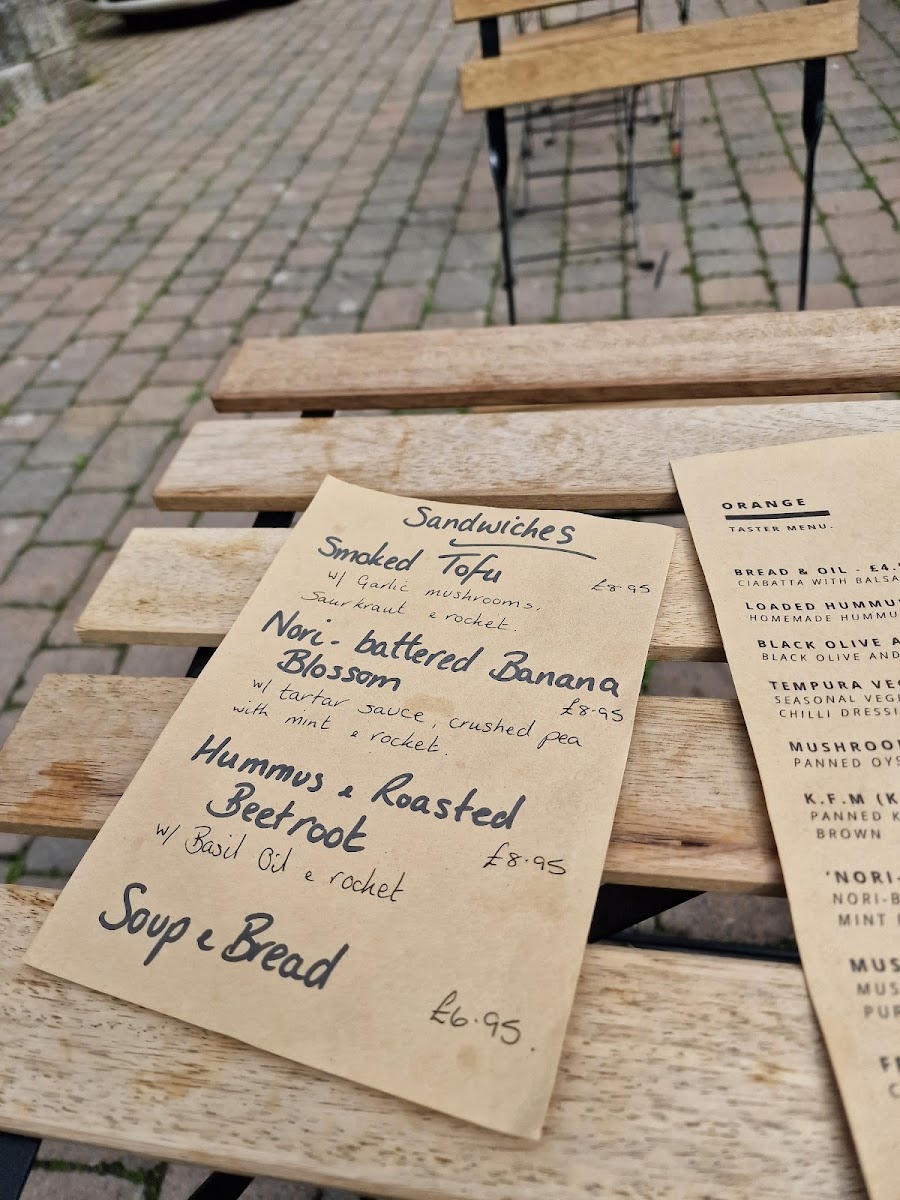 Sandwiches
Smoked Tofu
£8.95
w/ Garlic mushrooms,
Saurkraut & rocket.
Nori-battered Banana
Blossom
£8.95
w/ tartar sauce, crushed pea
with mint & rocket.
Hummus & Roasted
Beetroot
£8.95
w/ Basil Oil & rocket
Soup & Bread
£6.95.
ORANGE
TASTER MENU.
BREAD & OIL - £4.
CIABATTA WITH BALSA
LOADED HUMMUS
HOMEMADE HUMMU
BLACK OLIVE A
BLACK OLIVE AND
TEMPURA VEG
SEASONAL VEGE
CHILLI DRESSI
MUSHROO
PANNED OYS
K.F.M (K
PANNED K
BROWN
'NORI-
NORI-B
MINT
MUS
MUS
PUR